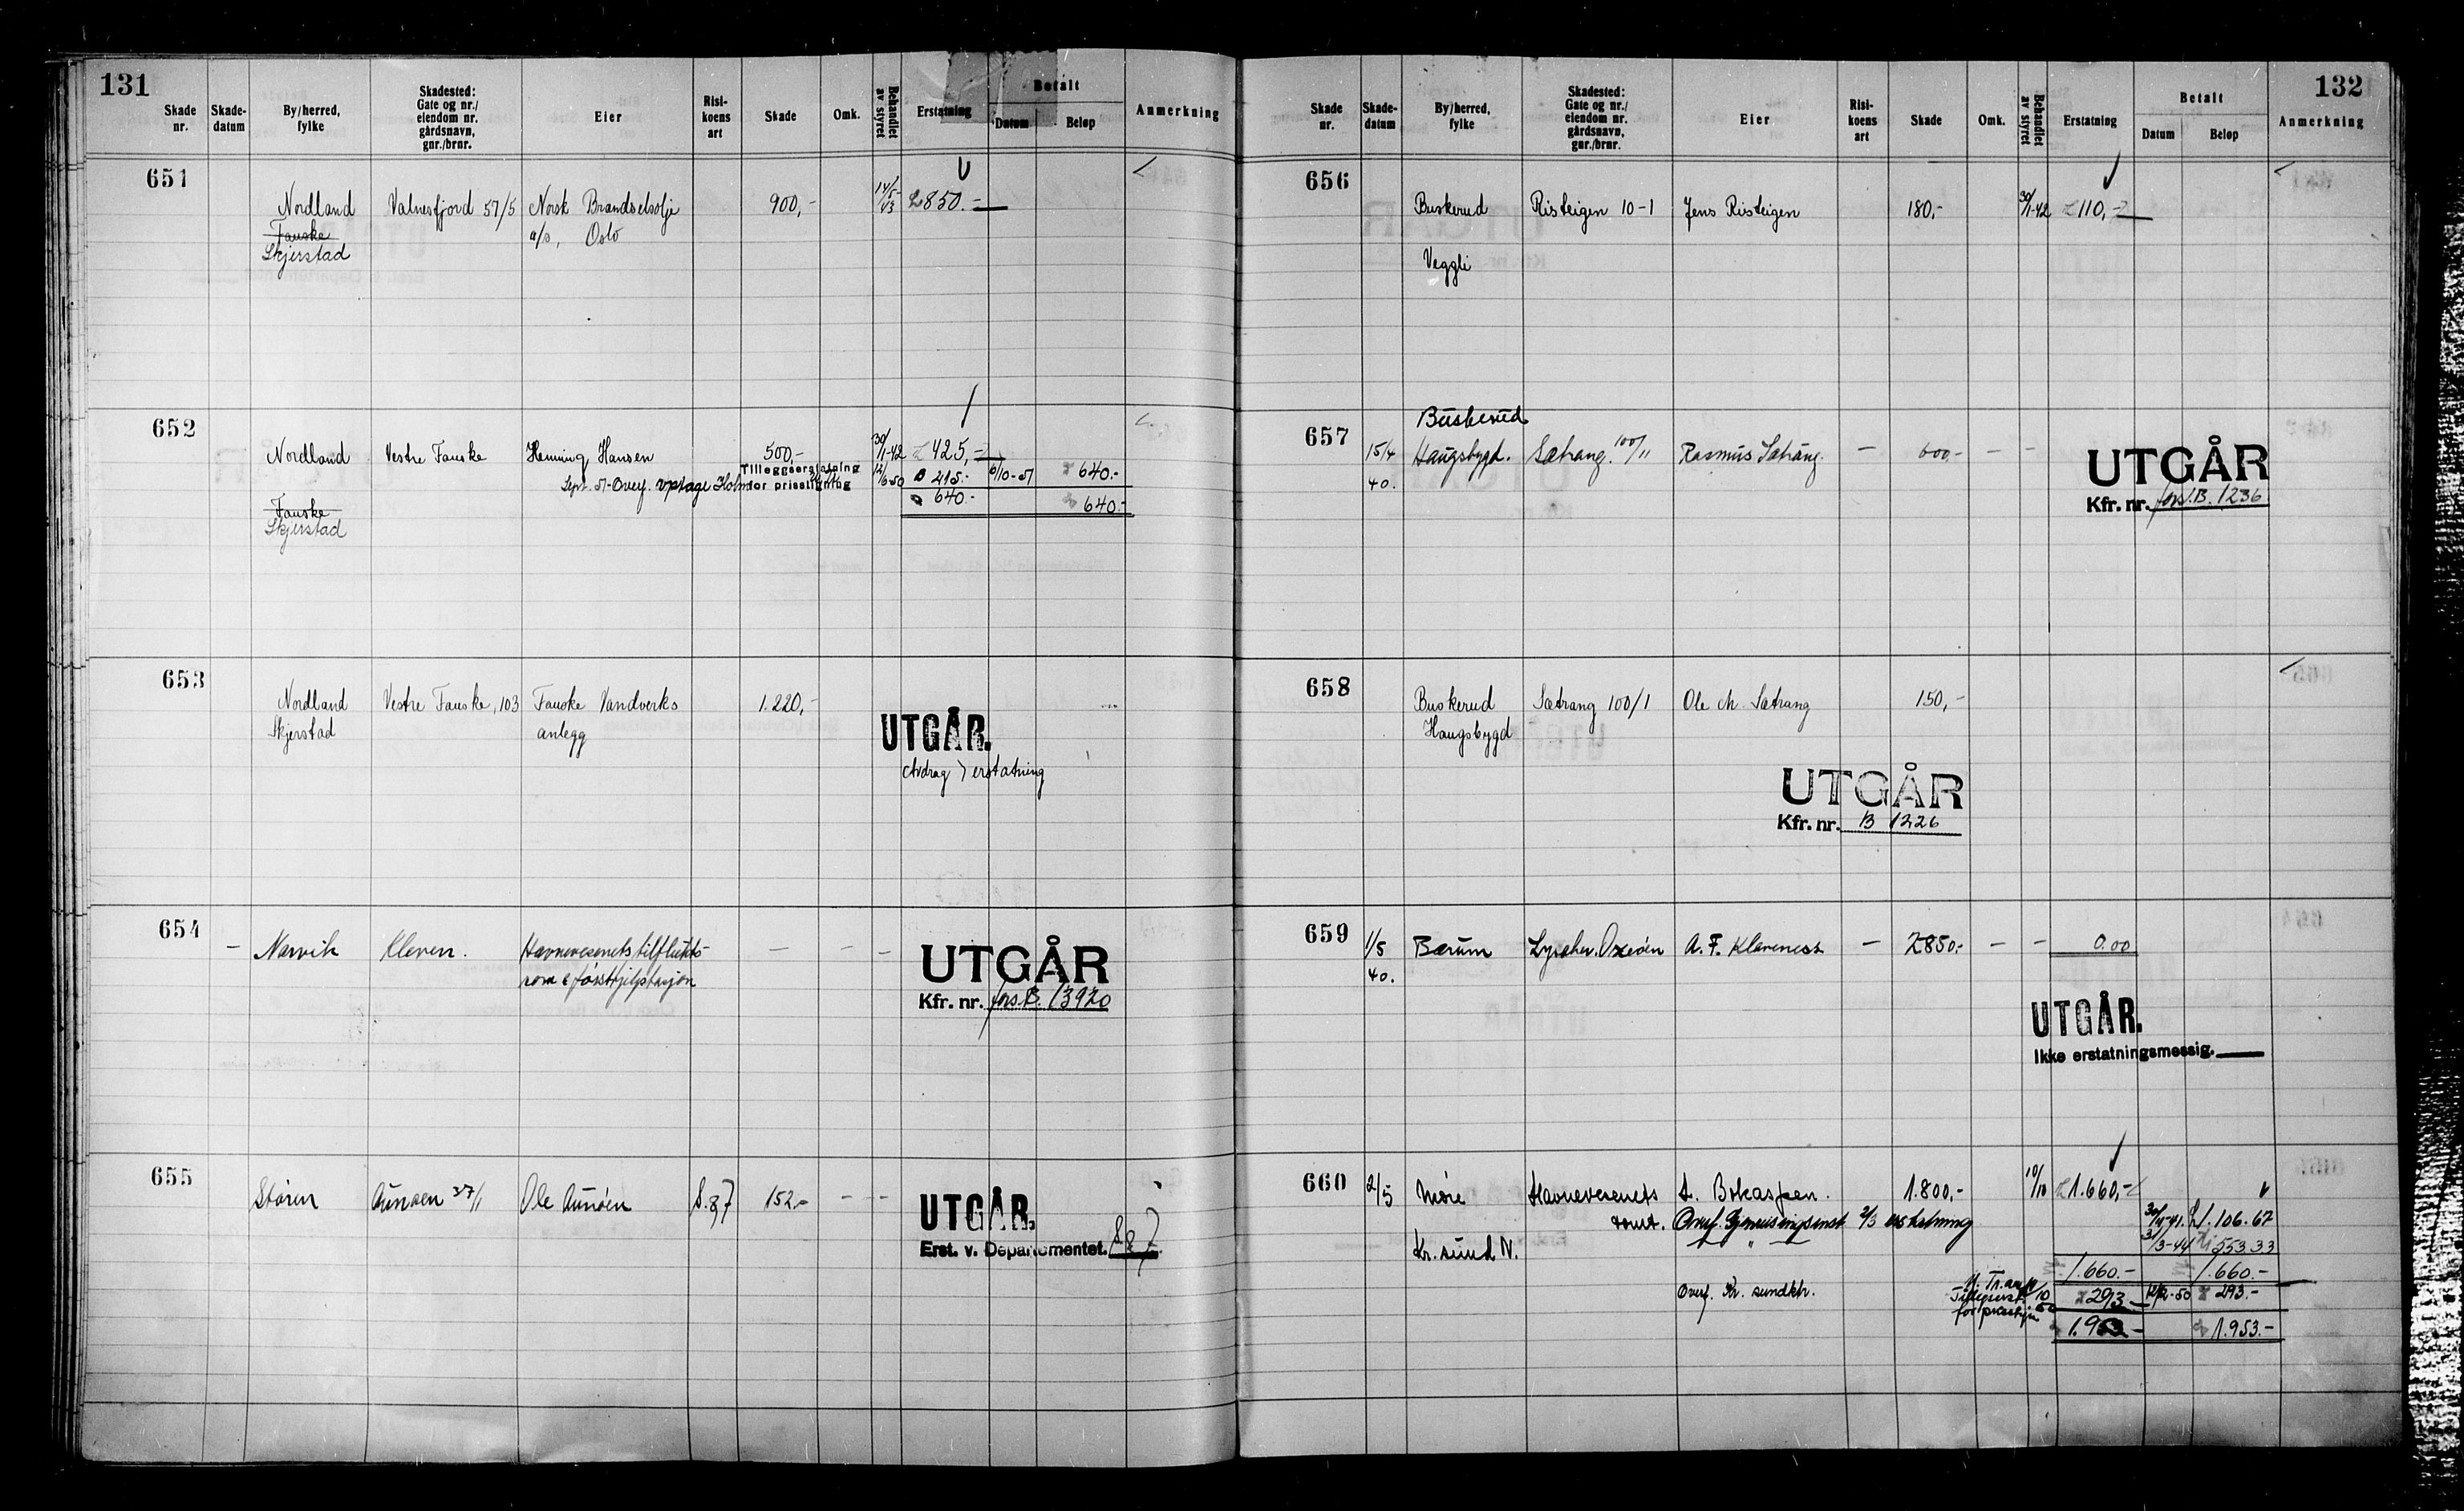 131
Skade nr.
Skade-datum
By/herred, fylke
Skadested: Gate og nr./ eiendom nr. gårdsnavn, gnr./brnr.
Eier
Risi-koens art
Skade
Omk.
Behandlet av styret
Erstatning
Betalt
Datum
Beløp
Anmerkning
651
Nordland Valnesfjord 57/5 Norsk Brandselsolje 900,- 14/5-43 850.-
Fauske a/s, Oslo
Skjerstad
652
Nordland Vestre Fauske Henning Hansen 500,- 30/1-42 425,-
Tilleggserstatning
Sept. 51-Overf. for prisstigning 12/6-50 215.- 6/10-51 640.-
640.- 640.-
Fauske
Skjerstad
653
Nordland Vestre Fauske, 103 Fauske Vandverks 1.220,-
Skjerstad anlegg
UTGÅR.
Avdrag > erstatning
654
- Narvik Kleven. Havnevesenets tilflukts- - - -
rom & førstehjelpstasjon
UTGÅR
Kfr. nr. fors.B. 13920
655
Støren Aunøen 37/1 Ole Aunøen S.87 152.- - -
UTGÅR.
Erst. v. Departementet. S 87.
132
Skade nr.
Skade-datum
By/herred, fylke
Skadested: Gate og nr./ eiendom nr. gårdsnavn, gnr./brnr.
Eier
Risi-koens art
Skade
Omk.
Behandlet av styret
Erstatning
Betalt
Datum
Beløp
Anmerkning
656
Buskerud Risteigen 10-1 Jens Risteigen 180,- 30/1-42 110,-
Veggli
657
Buskerud
15/4 Haugsbygd. Sætrang. 100/11 Rasmus Sætrang. - 600,- - -
40.
UTGÅR
Kfr. nr. fors.B. 1236
658
Buskerud Sætrang 100/1 Ole M. Sætrang 150,-
Haugsbygd
UTGÅR
Kfr. nr. B 1226
659
1/5 Bærum Lysaker. Oxeøen A. F. Klaveness - 2850.- - - 0.00
40.
UTGÅR.
Ikke erstatningsmessig.
660
2/5 Møre Havnevesenets 1.800,- 10/10 1.660,-
tomt. Overf. 2/3 erstatning 1.106.67
31/3-44 553.33
Kr.sund N.
1.660.- 1.660.-
Overf. Kr. sundktr.
293- 12/2-50 293.-
1.953- 1.953.-